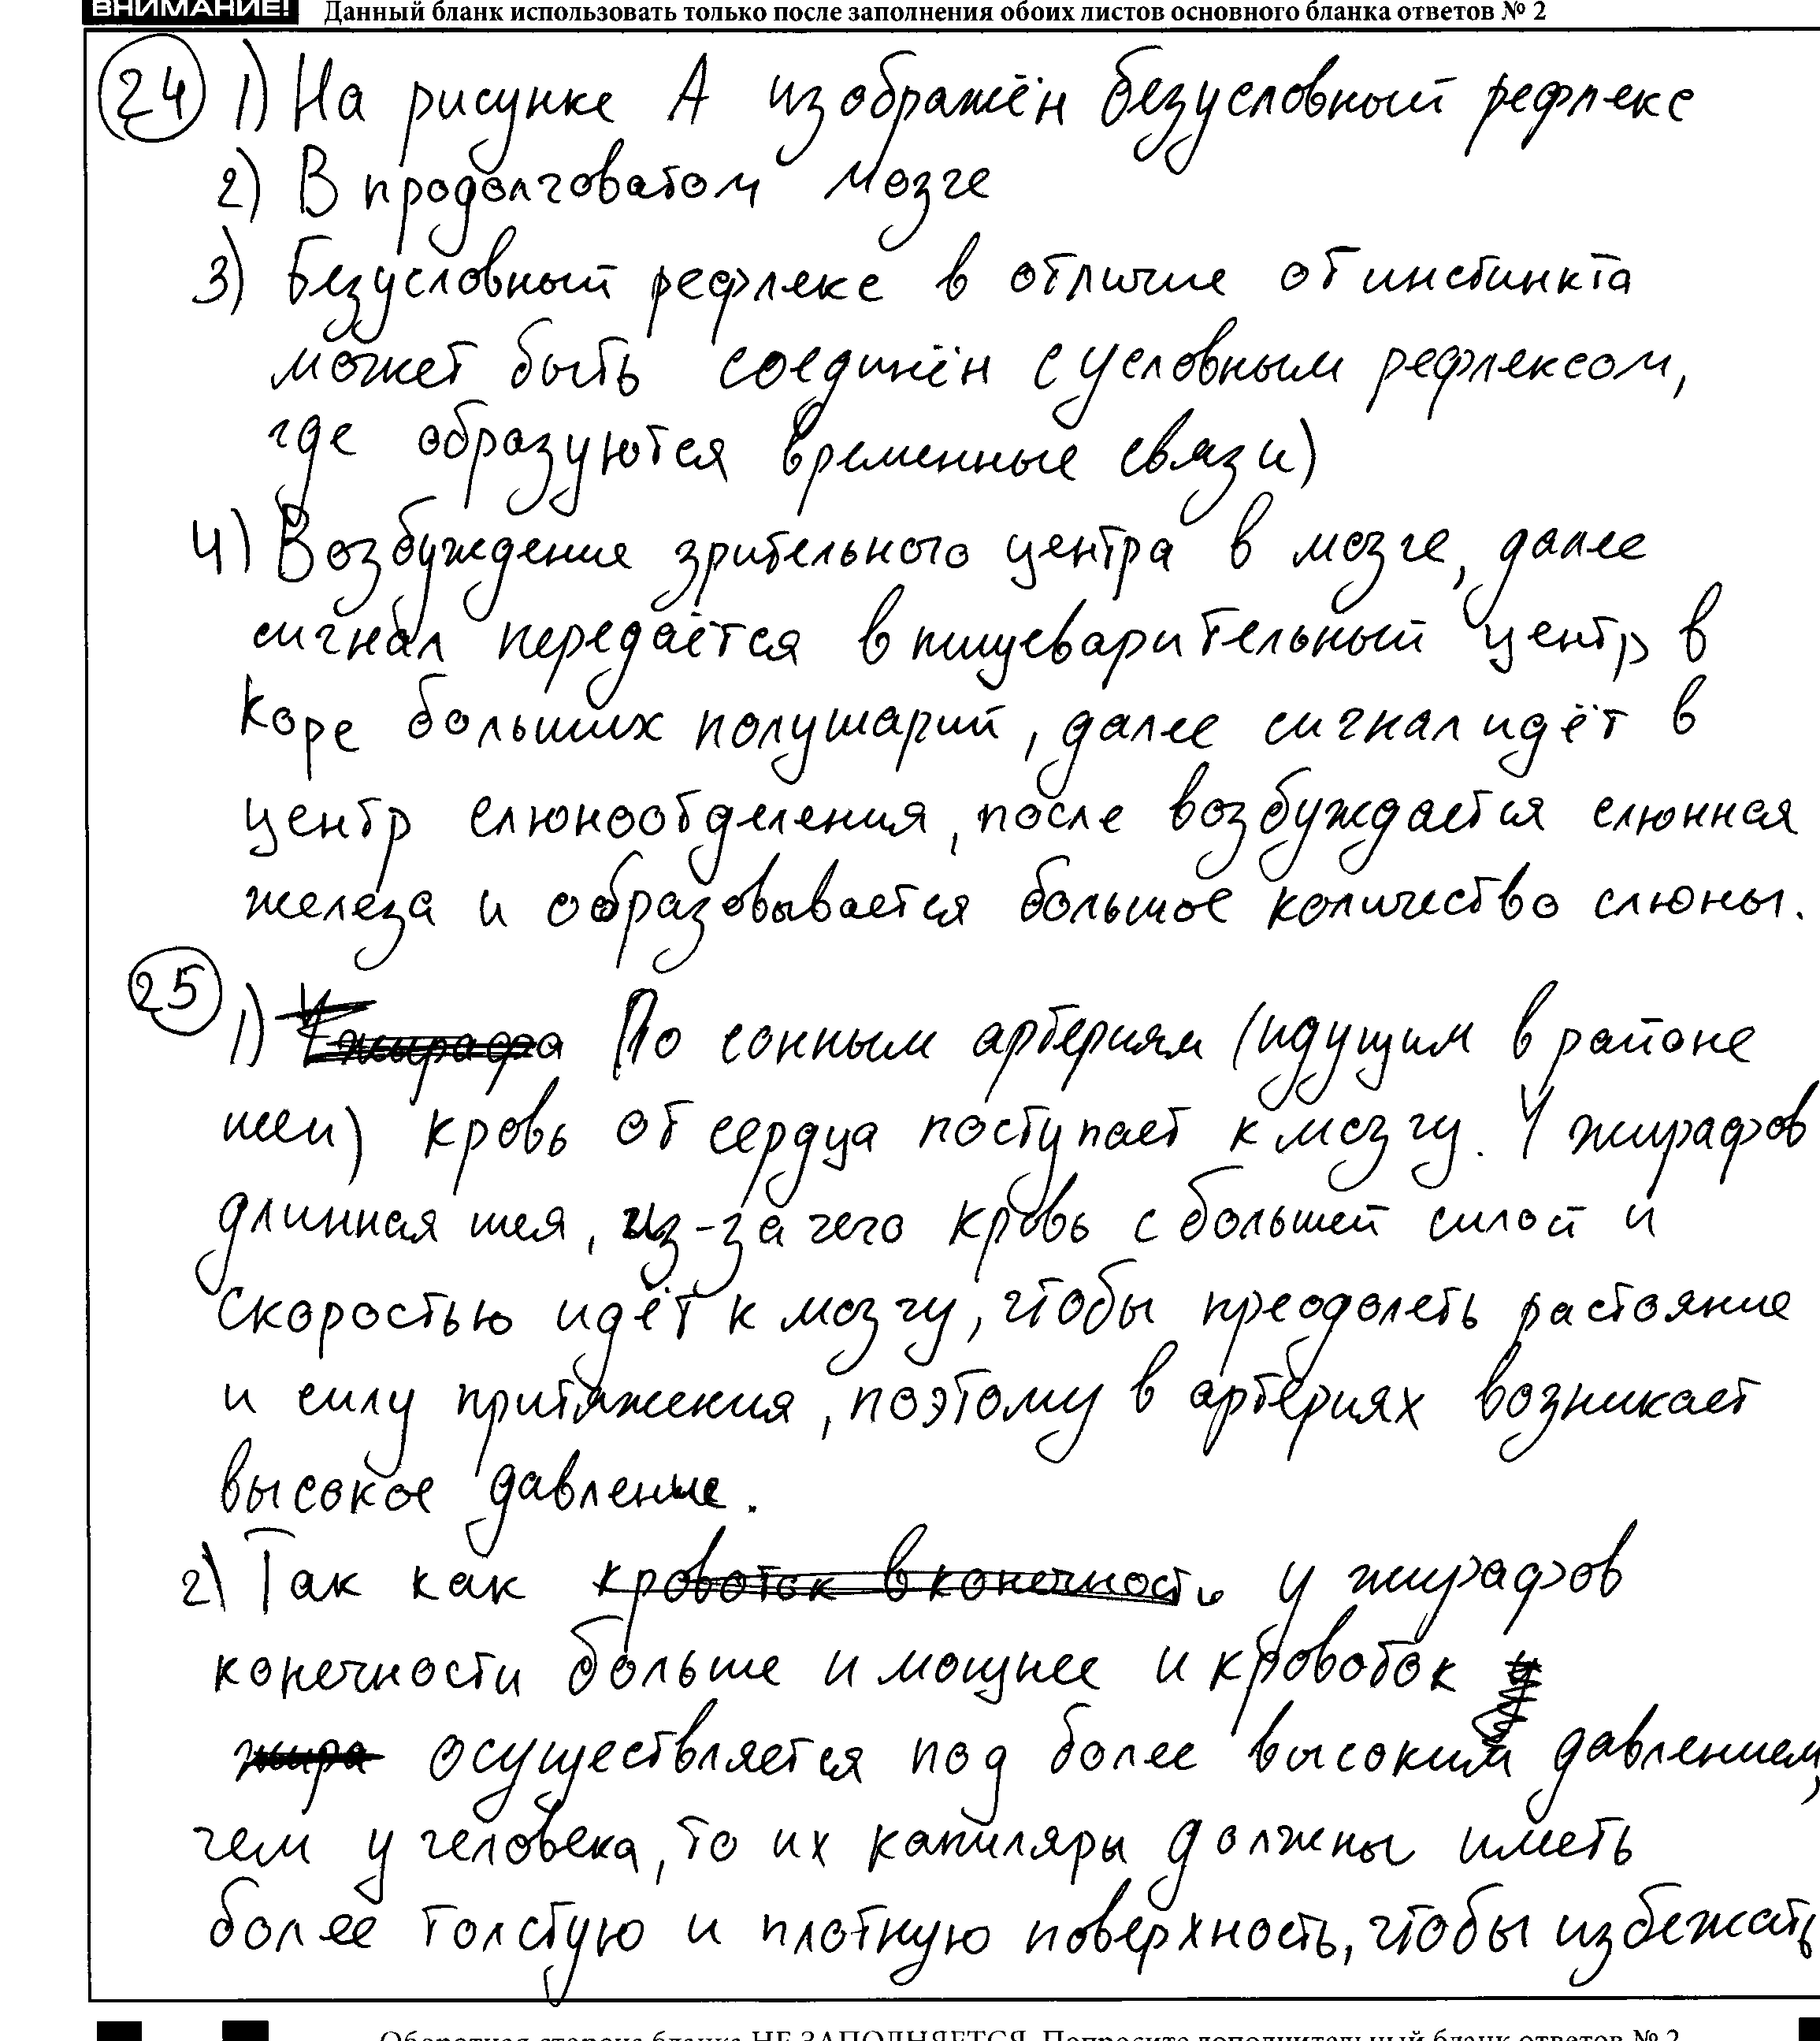 ВНИМАНИЕ! Данный бланк использовать только после заполнения обоих листов основного бланка ответов № 2
24 1) На рисунке А изображён безусловный рефлекс
2) В продолговатом мозге
3) Безусловный рефлекс в отличие от инстинкта
может быть соединён с условным рефлексом,
где образуются временные связи)
4) Возбуждение зрительного центра в мозге, далее
сигнал передаётся в пищеварительный центр в
коре больших полушарий, далее сигнал идёт в
центр слюноотделения, после возбуждается слюнная
железа и образовывается большое количество слюны.
25 1) У жирафа По сонным артериям (идущим в районе
шеи) кровь от сердца поступает к мозгу. У жирафов
длинная шея, из-за чего кровь с большей силой и
скоростью идёт к мозгу, чтобы преодолеть растояние
и силу притяжения, поэтому в артериях возникает
высокое давление.
2) Так как кровоток в конечность у жирафов
конечности больше и мощнее и кровоток у
жира осуществляется под более высоким давлением,
чем у человека, то их капиляры должны иметь
более толстую и плотную поверхность, чтобы избежать
Оборотная сторона бланка НЕ ЗАПОЛНЯЕТСЯ. Попросите дополнительный бланк ответов № 2